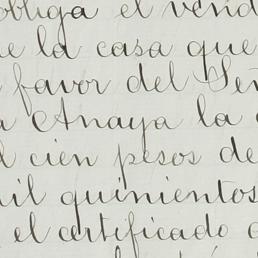 obliga el vend
e la casa que
favor del Señ
a Anaya la
l cien pesos de
mil quinientos
el certificado